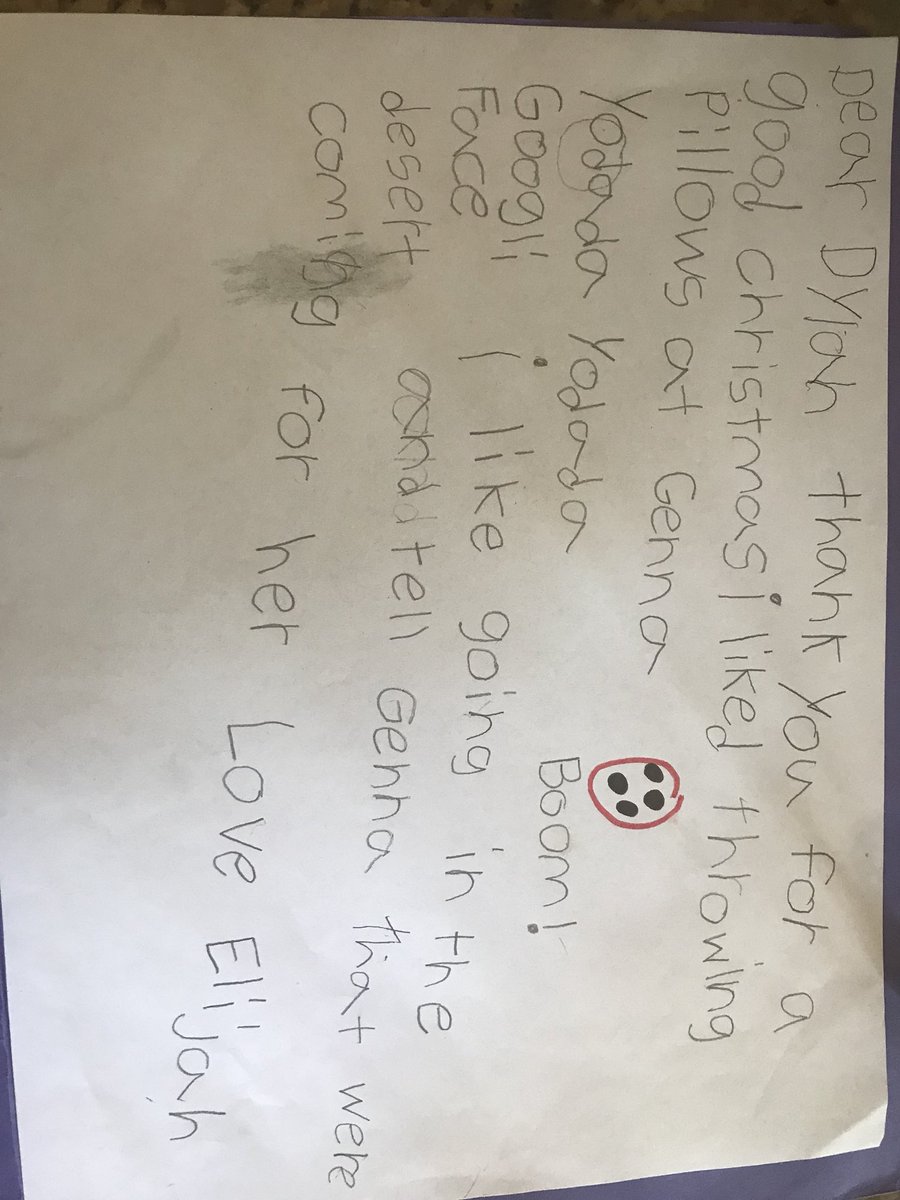 Dear Dylan thank you for a
good christmas i liked throwing
Pillows at Genna
Yodada Yodada Boom!
Googli
Face i like going in the
desert and tell Genna that were
coming for her Love Elijah